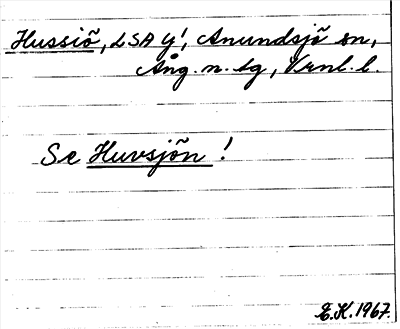 Hussiö, LSA Y!, Anundsjö sn,
Ång. n. tg, Vrnl. l.
Se Huvsjön!
E.K. 1967.